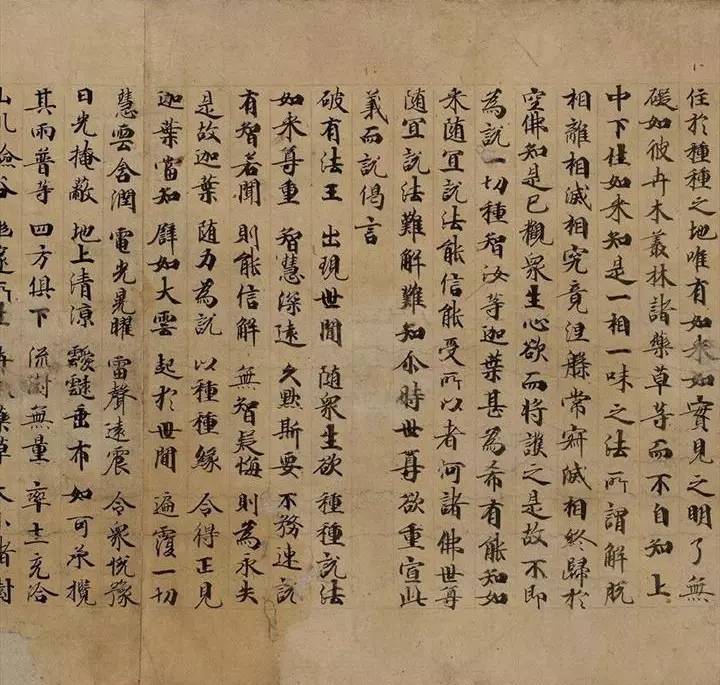 住於種種之地唯有如来如實見之明了無
礙如彼卉木叢林諸藥草等而不自知上
中下性如来知是一相一味之法所謂解脱
相離相滅相究竟涅槃常寂滅相終歸於
空佛知是已觀衆生心欲而將護之是故不即
為說一切種智汝等迦葉甚為希有能知如
来随宜說法能信能受所以者何諸佛世尊
随宜說法難解難知尒時世尊欲重宣此
義而說偈言
破有法王 出現世間 随衆生欲 種種說法
如来尊重 智慧深遠 久黙斯要 不務速說
有智若聞 則能信解 無智疑悔 則為永失
是故迦葉 随力為說 以種種緣 令得正見
迦葉當知 譬如大雲 起於世間 遍霞一切
慧雲含潤 電光晃曜 雷聲遠震 令衆恱豫
日光掩蔽 地上清涼 靉靆垂布 如可承攬
其雨普等 四方俱下 流澍無量 率土充洽
山川險谷 藥草 大小諸樹